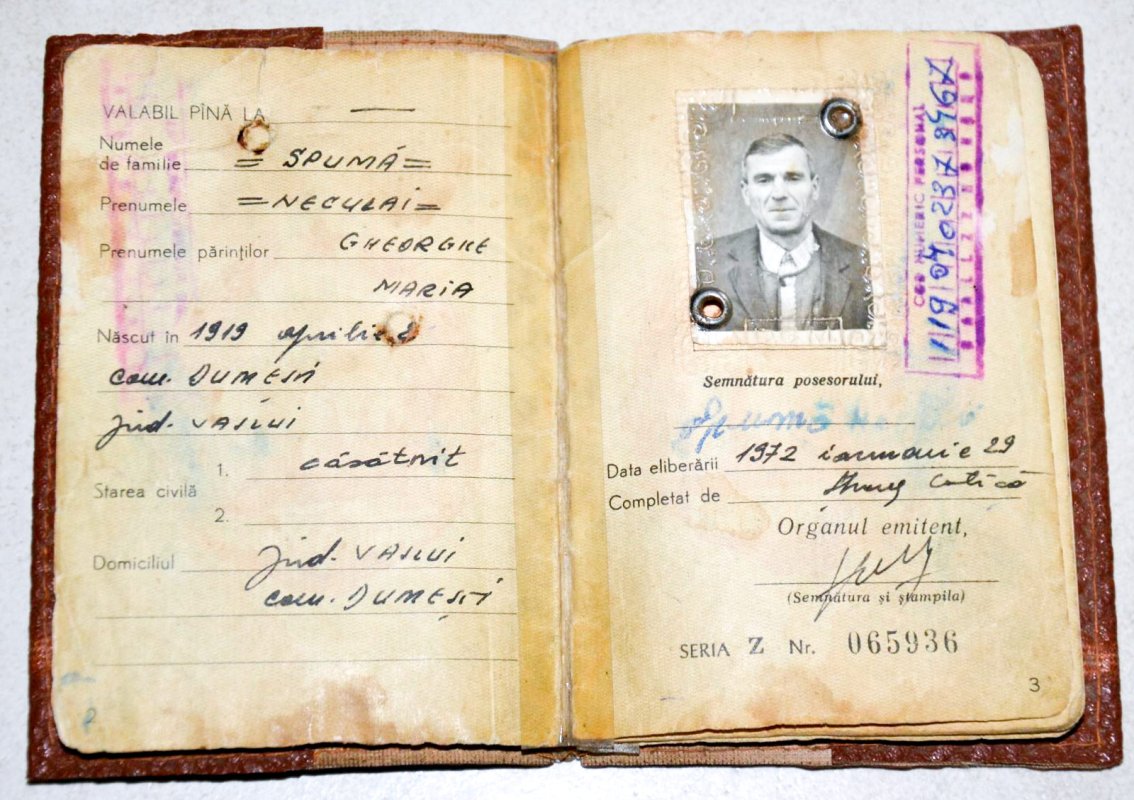 VALABIL PÎNĂ LA —
Numele
de familie = SPUMĂ =
Prenumele = NECULAI =
Prenumele părinților GHEORGHE
MARIA
Născut în 1919 aprilie
com. DUMEȘTI
jud. VASLUI
1. căsătorit
Starea civilă
2.
Domiciliul jud. VASLUI
com. DUMEȘTI
COD NUMERIC PERSONAL
Semnătura posesorului,
Spumă
Data eliberării 1972 ianuarie 29
Completat de
Organul emitent,
(Semnătura și ștampila)
SERIA Z Nr. 065936
3